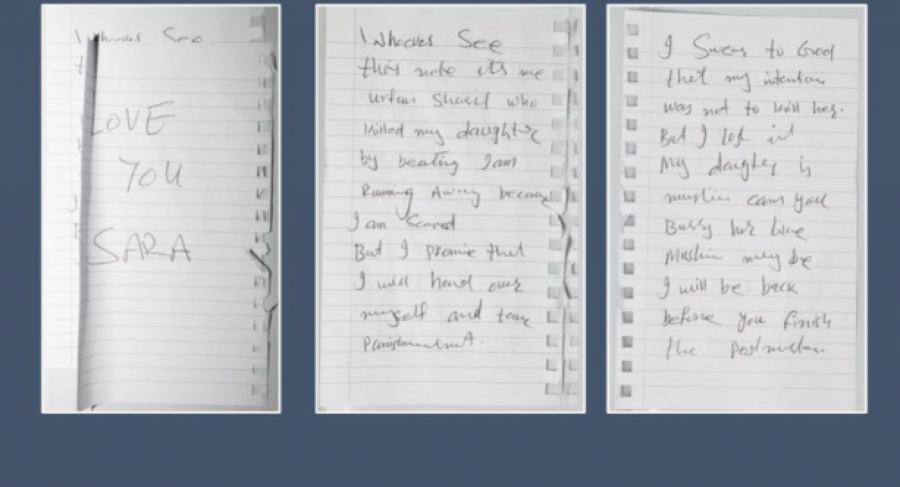 I Whoever See
LOVE
YOU
SARA
I Whoever See
this note its me
urfan Sharif who
killed my daughter
by beating I am
Running Away because
I am scared
But I promise that
I will hand over
myself and take
Punishment.
I Swear to God
that my intention
was not to kill her.
But I lost it
My daughter is
muslim can you
Bury her like
Muslim may be
I will be back
before you finish
the Postmortem